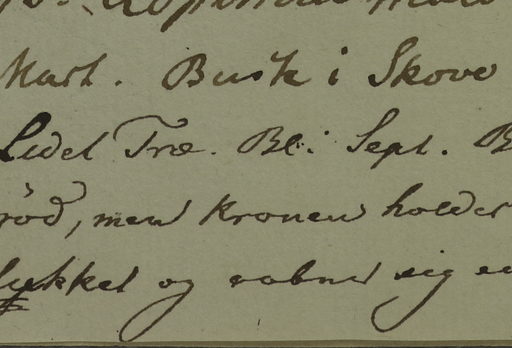 Mart. Busk i Skove
Lidet Træ. Bl: Sept. B
röd, men Kronen holder
lukket og aabner sig en